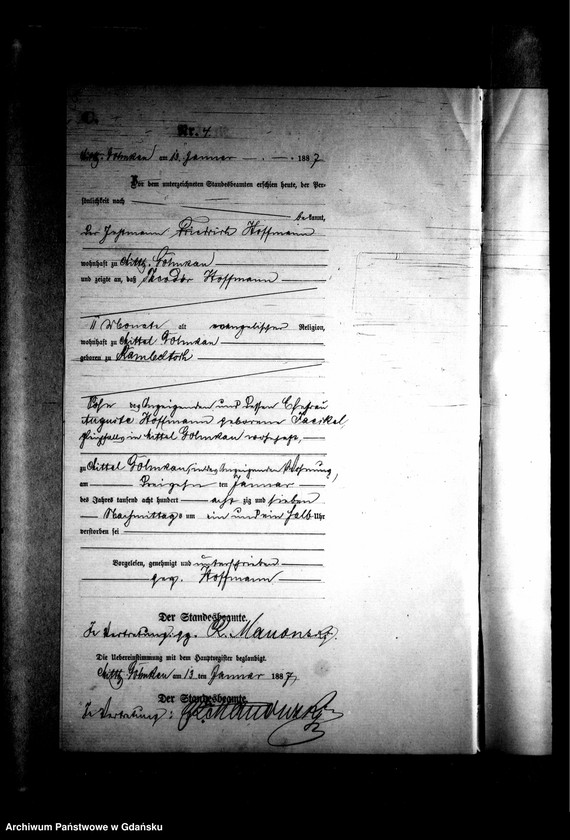 C.
Nr. 4
Mittl. Golmkau am 13. Januar 1887
Vor dem unterzeichneten Standesbeamten erschien heute, der Per-
sönlichkeit nach
bekannt,
der Friedrich Hoffmann
wohnhaft zu Mittl. Golmkau
und zeigte an, daß Theodor Hoffmann
11 Monate alt evangelischer Religion,
wohnhaft zu Mittel Golmkau
geboren zu
Sohn des Anzeigenden und dessen Ehefrau
Auguste Hoffmann geborene
gleichfalls in Mittel Golmkau wohnhaft,
zu Mittel Golmkau, in des Anzeigenden Wohnung,
am Dreizehn ten Januar
des Jahres tausend acht hundert acht zig und sieben
Nachmittags um ein und ein halb Uhr
verstorben sei
Vorgelesen, genehmigt und unterschrieben
gez. Hoffmann
Der Standesbeamte.
In Vertretung: gez.
Die Uebereinstimmung mit dem Hauptregister beglaubigt.
Mittl. Golmkau am 13 ten Januar 1887
Der Standesbeamte.
In Vertretung:
Archiwum Państwowe w Gdańsku